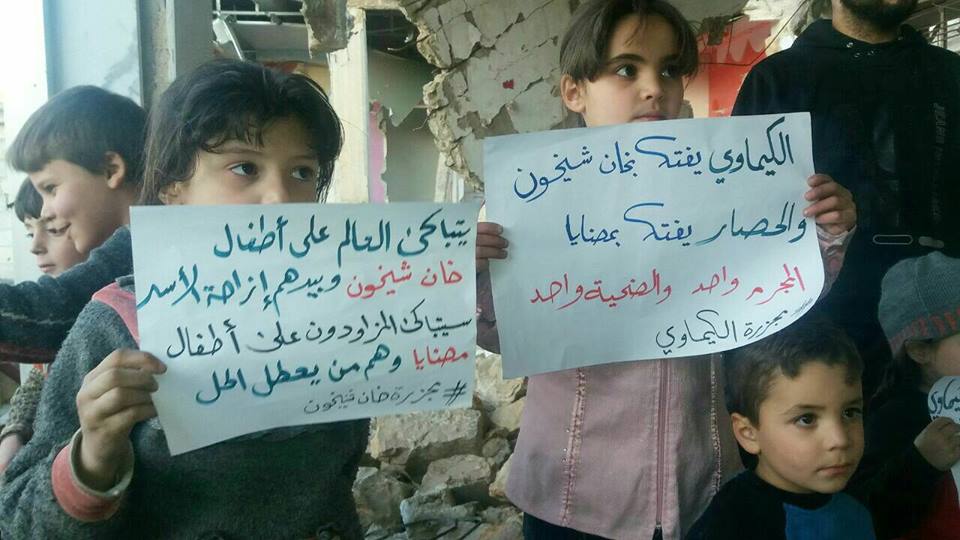 الكيماوي يفتك بخان شيخون
والحصار يفتك بمضايا
المجرم واحد والضحية واحد
مجزرة الكيماوي
يتباكى العالم على أطفال
خان شيخون وبيدهم إزاحة الأسد
سيتباكى المزاودون على أطفال
مضايا وهم من يعطل الحل
#مجزرة خان شيخون
الكيماوي